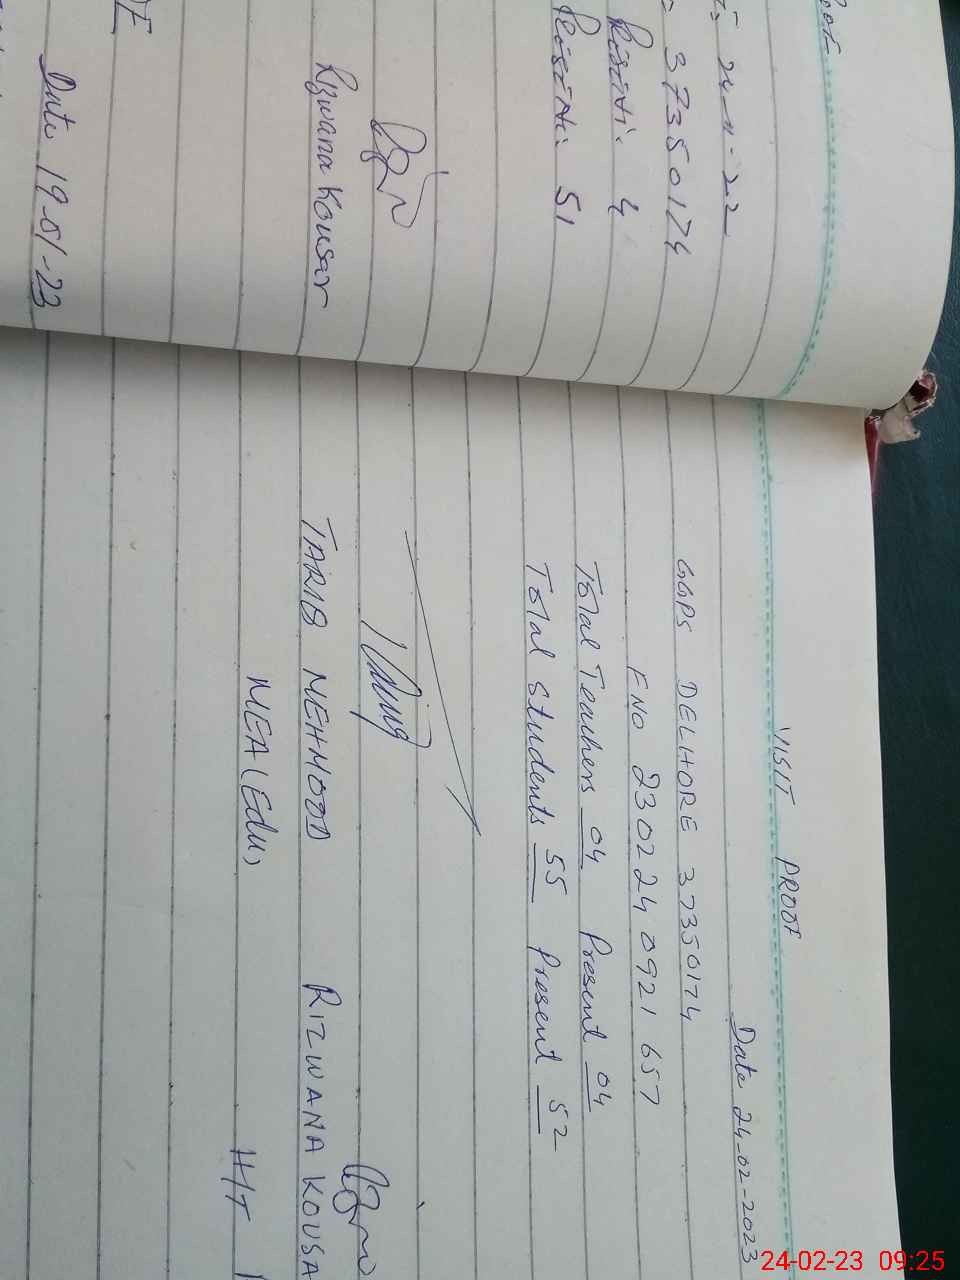 24-11-22
37350174
4
51
Rizwana Kousar
Date 19-01-23
VISIT PROOF
Date 24-02-2023
GGPS DELHORE 37350174
FNO 230224 0921 657
Total Teachers 04 Present 04
Total Students 55 Present 52
TARIQ MEHMOOD RIZWANA KOUSA
MEA (Edu) H/T
24-02-23 09:25